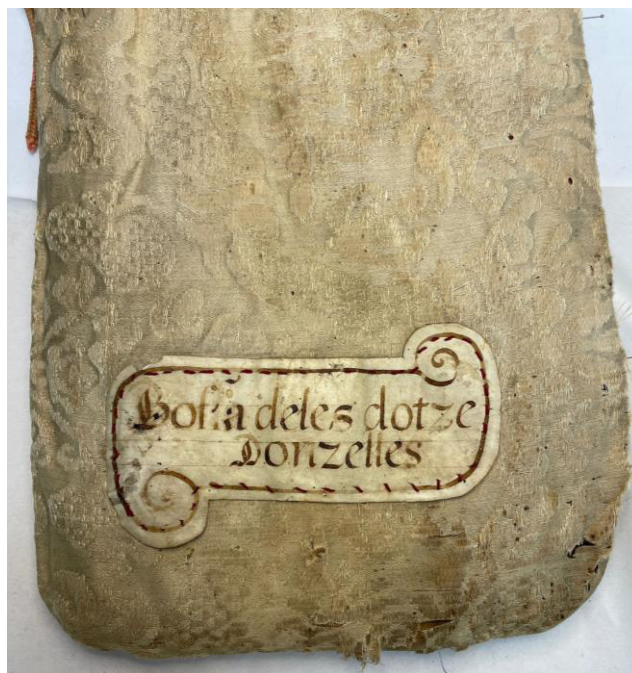 Boſſa deles dotze
Donzelles